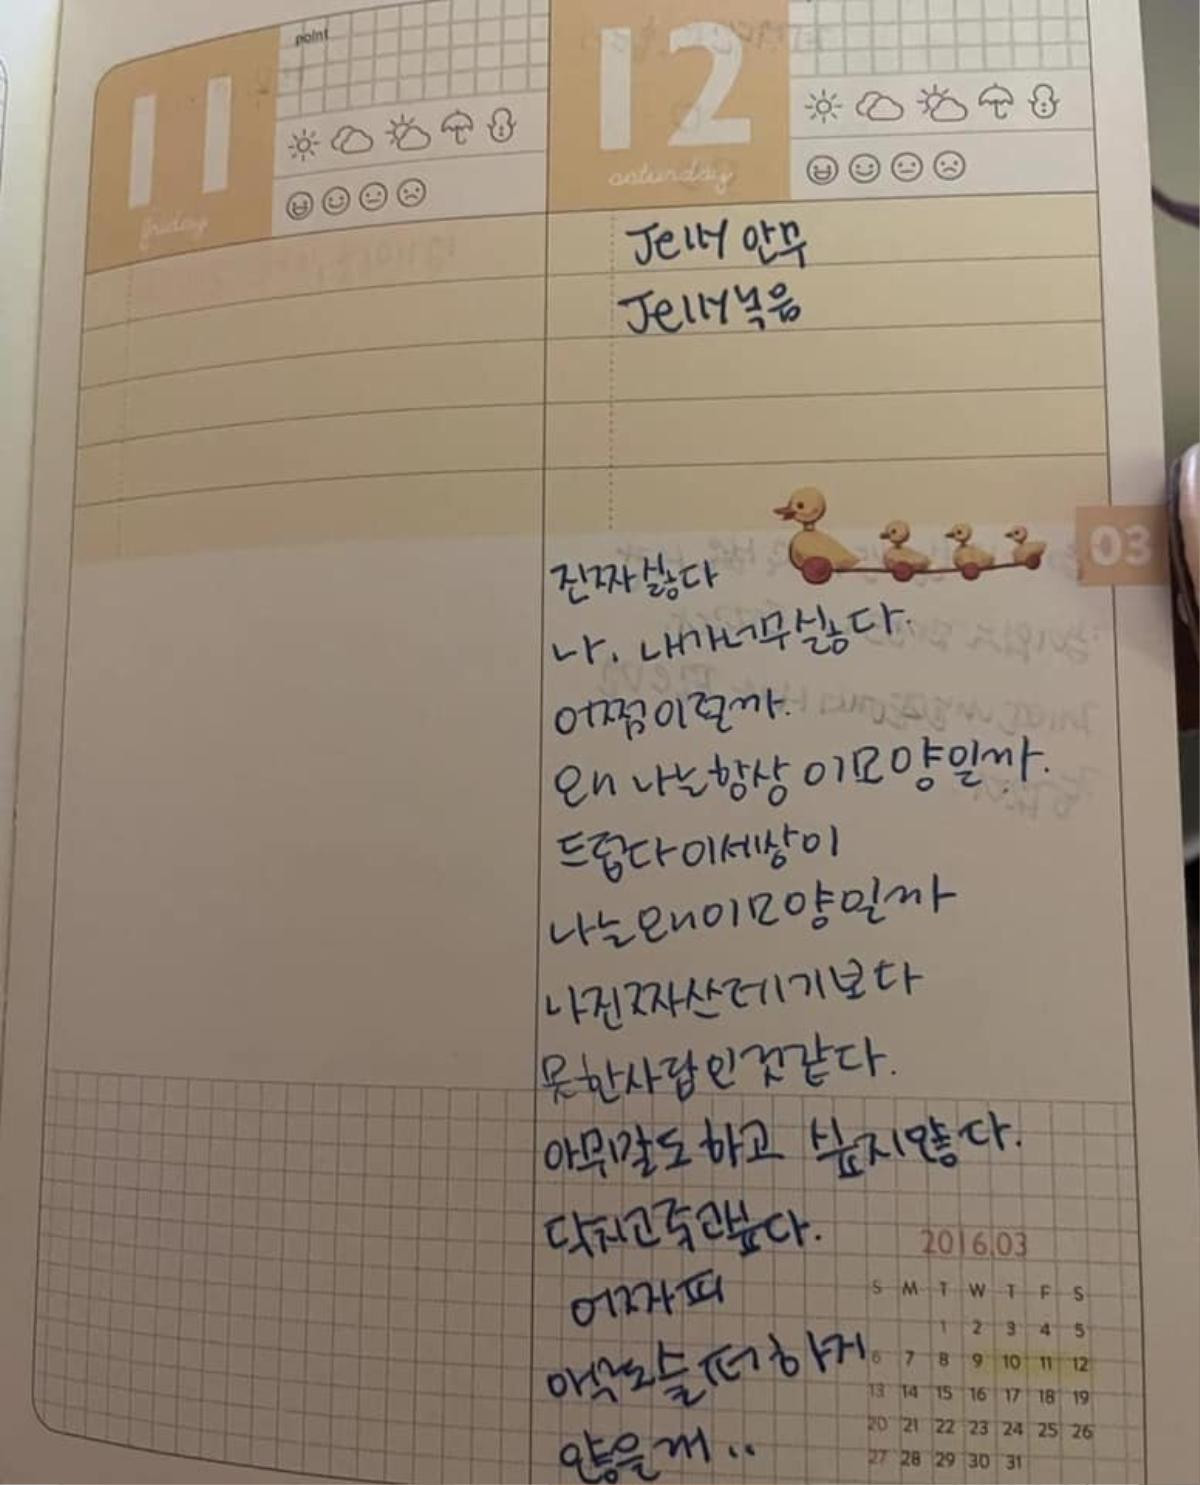 point
11
friday
12
saturday
Jelly 안무
Jelly 녹음
03
진짜 싫다
나. 내가 너무 싫다.
어쩜 이럴까.
왜 나는 항상 이모양일까.
드럽다 이세상이
나는 왜 이모양일까
나 진짜 산데기보다
못한 사람인 것 같다.
아무말도 하고 싶지 않다.
닥치고 죽고싶다.
어짜피
아무도 슬퍼하지
않을걸..
2016.03
S M T W T F S
1 2 3 4 5
6 7 8 9 10 11 12
13 14 15 16 17 18 19
20 21 22 23 24 25 26
27 28 29 30 31